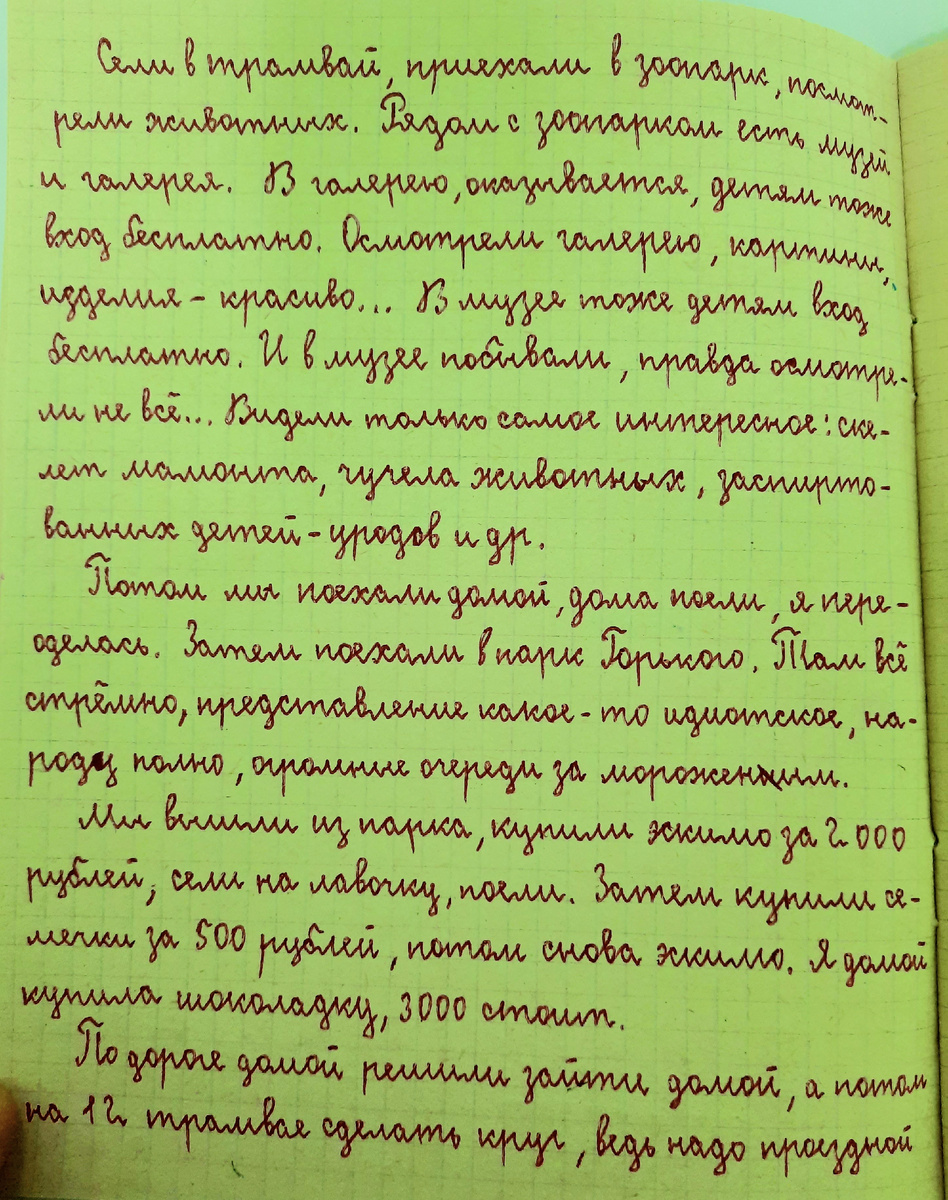 Сели в трамвай, приехали в зоопарк, посмот-
рели животных. Рядом с зоопарком есть музей
и галерея. В галерею, оказывается, детям тоже
вход бесплатно. Осмотрели галерею, картины,
изделия - красиво... В музее тоже детям вход
бесплатно. И в музее побывали, правда осмотре-
ли не всё... Видели только самое интересное: ске-
лет мамонта, чучела животных, заспирто-
ванных детей-уродов и др.
Потом мы поехали домой, дома поели, я пере-
оделась. Затем поехали в парк Горького. Там всё
стрёмно, представление какое-то идиотское, на-
роду полно, огромные очереди за мороженым.
Мы вышли из парка, купили экимо за 2 000
рублей, сели на лавочку, поели. Затем купили се-
мечки за 500 рублей, потом снова экимо. Я домой
купила шоколадку, 3000 стоит.
По дороге домой решили зайти домой, а потом
на 12 трамвае сделать круг, ведь надо проездной